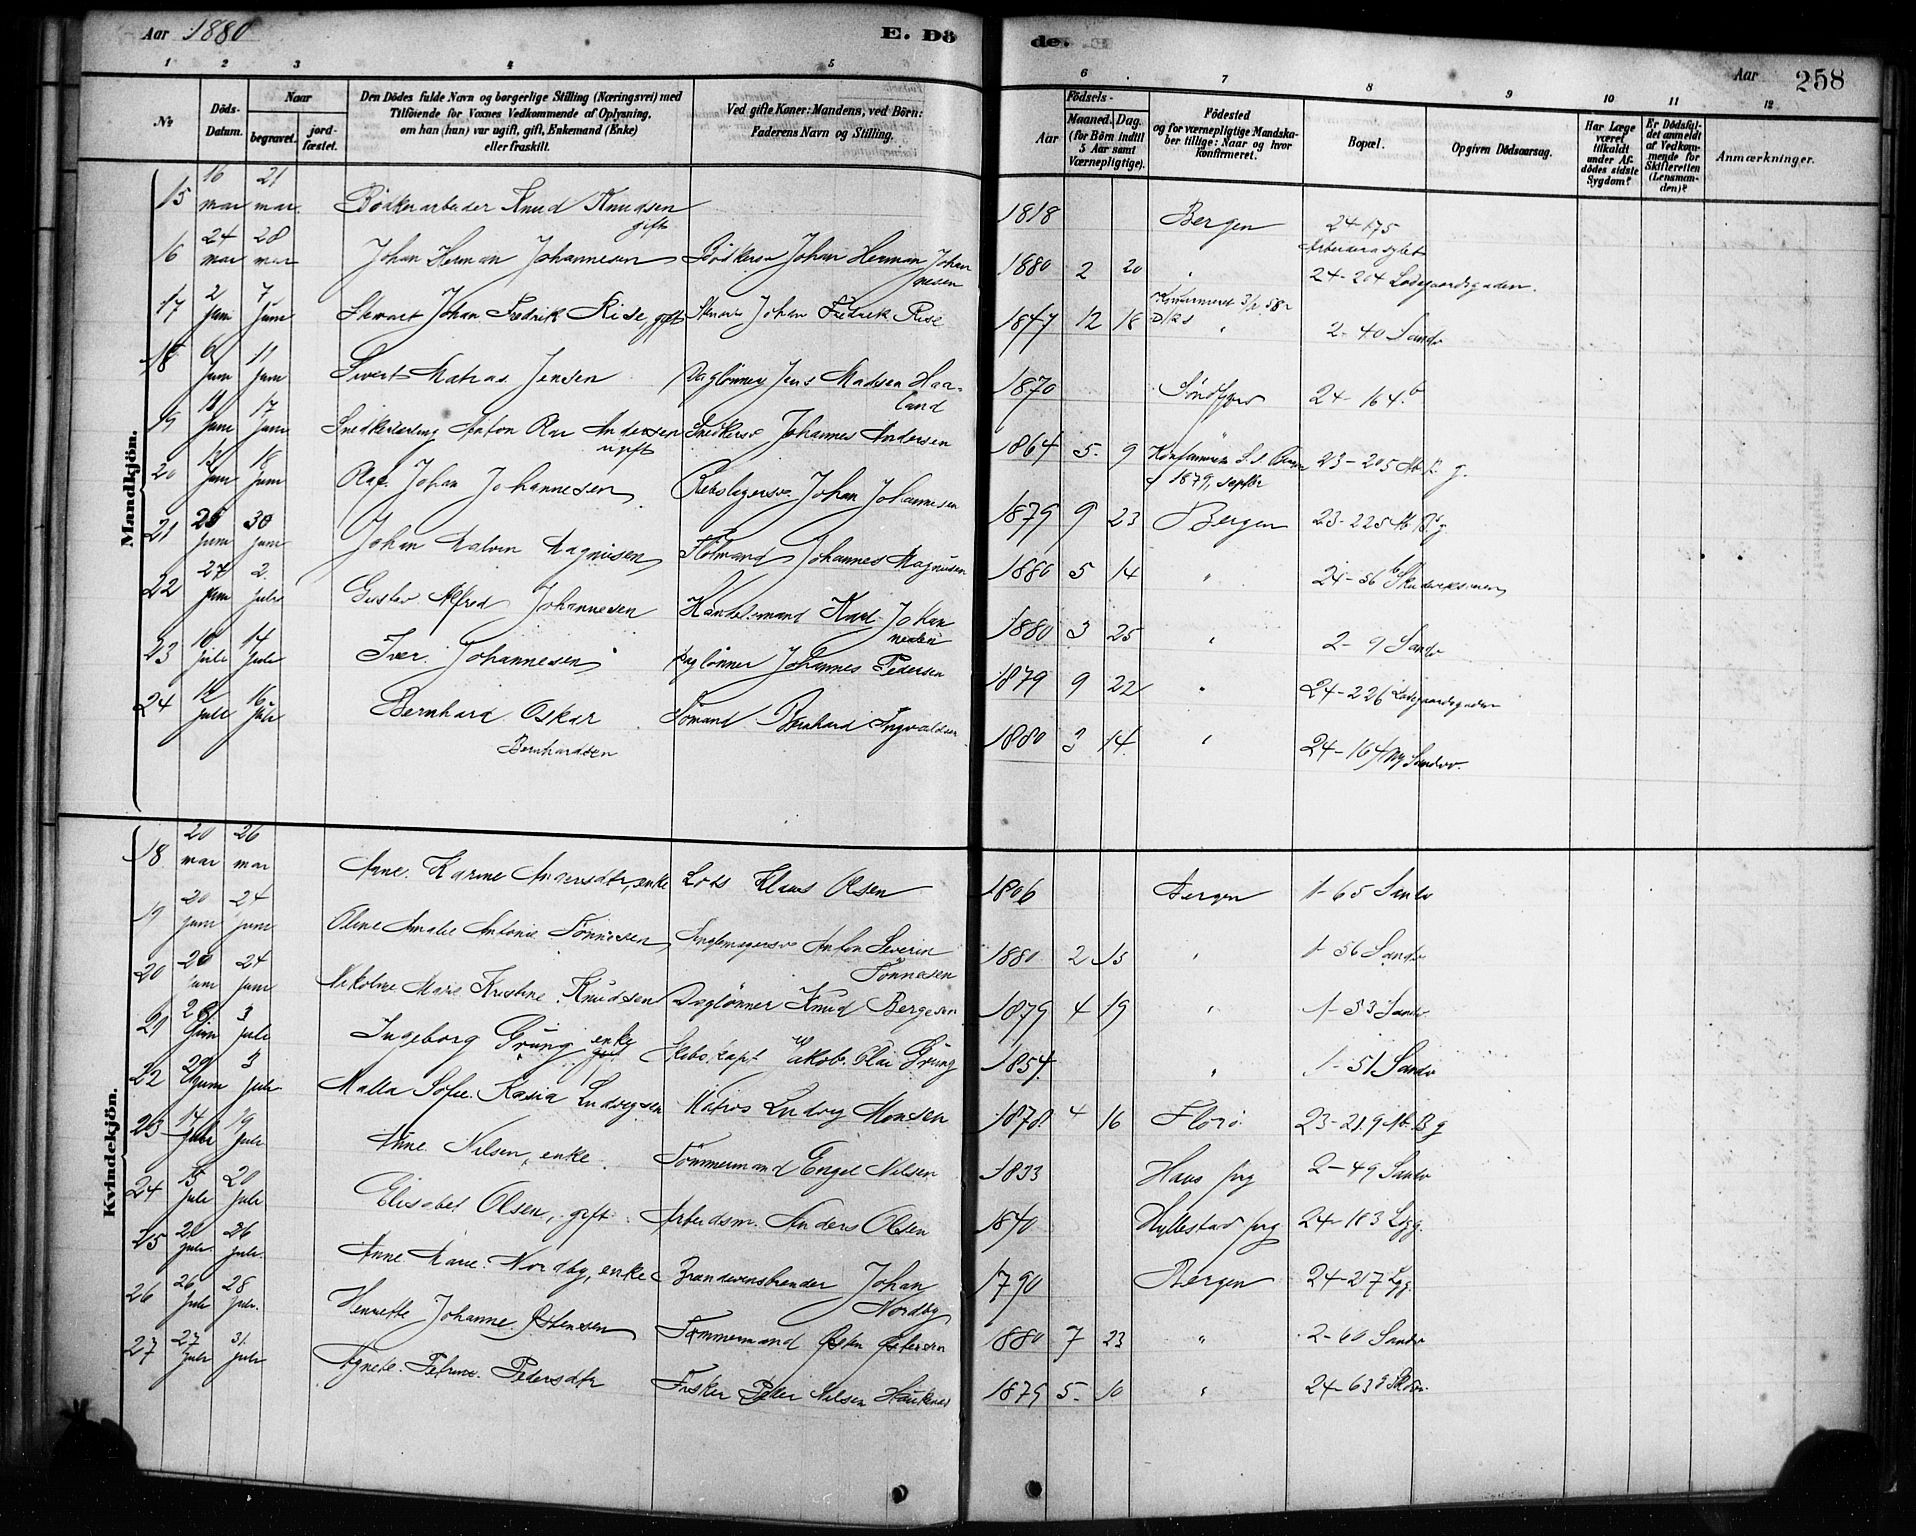 Aar 1880
E. Dö
de.
Aar 258
1 2 3 4 5 6 7 8 9 10 11 12
No
Döds-Datum.
Naar
begravet.
jord-fæstet.
Den Dödes fulde Navn og borgerlige Stilling (Næringsvei) med
Tilföiende for Voxnes Vedkommende af Oplysning,
om han (hun) var ugift, gift, Enkemand (Enke)
eller fraskilt.
Ved gifte Koner: Mandens, ved Börn:
Faderens Navn og Stilling.
Födsels-
Aar
Maaned. Dag.
(for Börn indtil
5 Aar samt
Værnepligtige).
Födested
og for værnepligtige Mandska-
ber tillige: Naar og hvor
konfirmeret.
Bopæl.
Opgiven Dödsaarsag.
Har Læge
været
tilkaldt
under Af-
dödes sidste
Sygdom?
Er Dödsfal-
det anmeldt
af Vedkom-
mende for
Skifteretten
(Lensman-
den)?
Anmærkninger.
Mandkjön.
15 16 mar 21 mar Bödkerarbeider Knud Knudsen gift 1818 Bergen 24-175 Arbeiderasylet
16 24 mar 28 mar Johan Herman Johannesen Bödkersv Johan Herman Johannesen 1880 2 20 " 24-204 Ladegaardsgaden
17 2 Juni 7 Juni Stuart Johan Fredrik Rise, gift Johan Fredrik Rise 1847 12 18 " 2-40 Sandv
18 6 Juni 11 Juni Sivert Matias Jensen Daglönner Jens Madsen Haaland 1870 Söndfjord 24-164 b
19 11 Juni 17 Juni Anton Andersen ugift Snedkersv Johannes Andersen 1864 5 9 1879 23-205
20 13 Juni 18 Juni Olaf Johan Johannesen Rebslagersv. Johan Johannesen 1879 9 23 Bergen 23-225
21 25 Juni 30 Juni Johan Magnusen Johannes Magnusen 1880 5 14 "
22 27 Juni 2 Juli Gustav Alfred Johannesen Handelsmand Karl Johannesen 1880 3 25 " 2-9 Sandv
23 10 Juli 14 Juli Iver Johannesen Daglönner Johannes Pedersen 1879 9 22 " 24-226 Ladegaardsgaden
24 12 Juli 16 Juli Bernhard Oskar Bernhardsen Sömand Bernhard Ingvaldsen 1880 3 14 " 24-164
Kvindekjön.
18 20 mar 26 mar Anne Karine Andersdtr, enke Lods Klaus Olsen 1806 Bergen 1-65 Sandv
19 20 Juni 24 Juni Oline Amalie Antonie Tönnesen Anton Severin Tönnesen 1880 2 15 " 1-56 Sandv
20 20 Juni 24 Juni Nikoline Marie Kristine Knudsen Daglönner Knud Bergesen 1879 4 19 " 1-53 Sandv
21 28 Juni 3 Juli Ingeborg Grung enke Skibskapt Jakob Olai Grung 1854 " 1-51 Sandv
22 29 Juni 3 Juli Malla Sofie Ludvigsen Matros Ludvig Monsen 1878 4 16 Florö 23-219
23 14 Juli 19 Juli Anne Nilsen, enke Tömmermand Engel Nilsen 1833 Haus prg 2-49 Sandv
24 15 Juli 20 Juli Elisabet Olsen, gift Arbeidsm. Anders Olsen 1840 Hyllestad prg 24-183 Lgg.
25 20 Juli 26 Juli Anne Marie Nordby, enke Brændevinsbrænder Johan Nordby 1790 Bergen 24-217 Lgg.
26 26 Juli 28 Juli Henrette Johanne Östensen Tömmermand Östen 1880 7 23 " 2-60 Sandv
27 27 Juli 31 Juli Agnete Petrine Pedersdtr Fisker Peder Nilsen Haukenes 1879 5 10 " 24-63